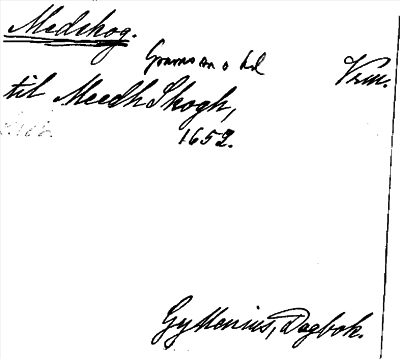 Medskog.
Grams on o hd Vrm.
til MeedhSkogh,
1652.
Gyllenius, Dagbok.